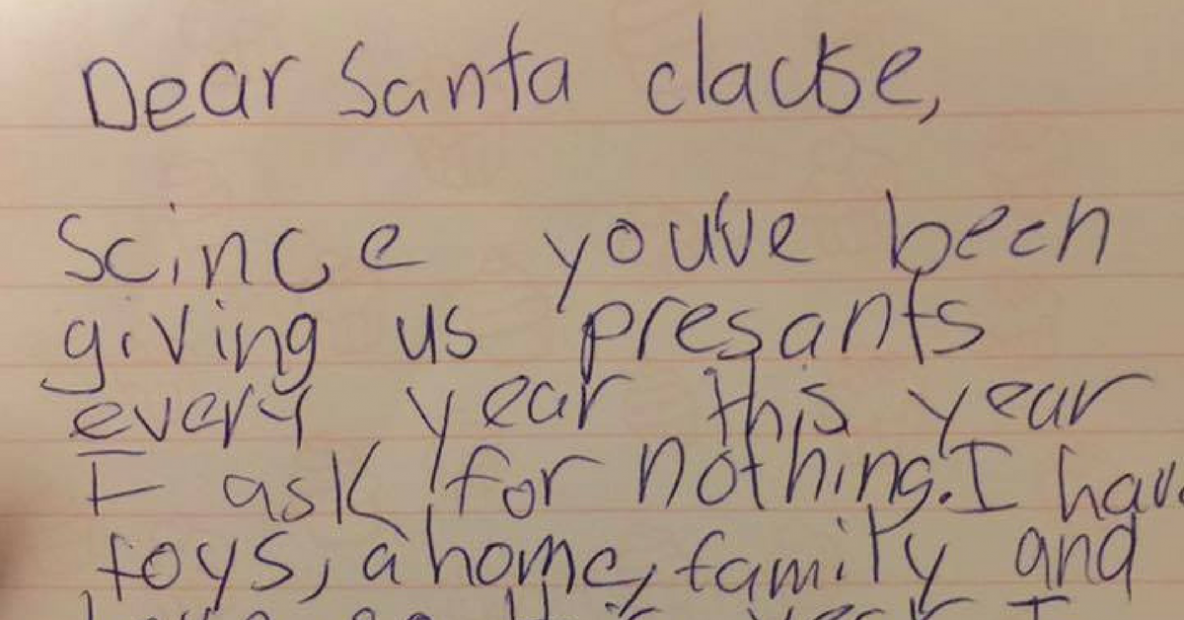 Dear Santa clause,
Scince you've been
giving us presants
every year this year
I ask for nothing. I have
toys, a home, family and